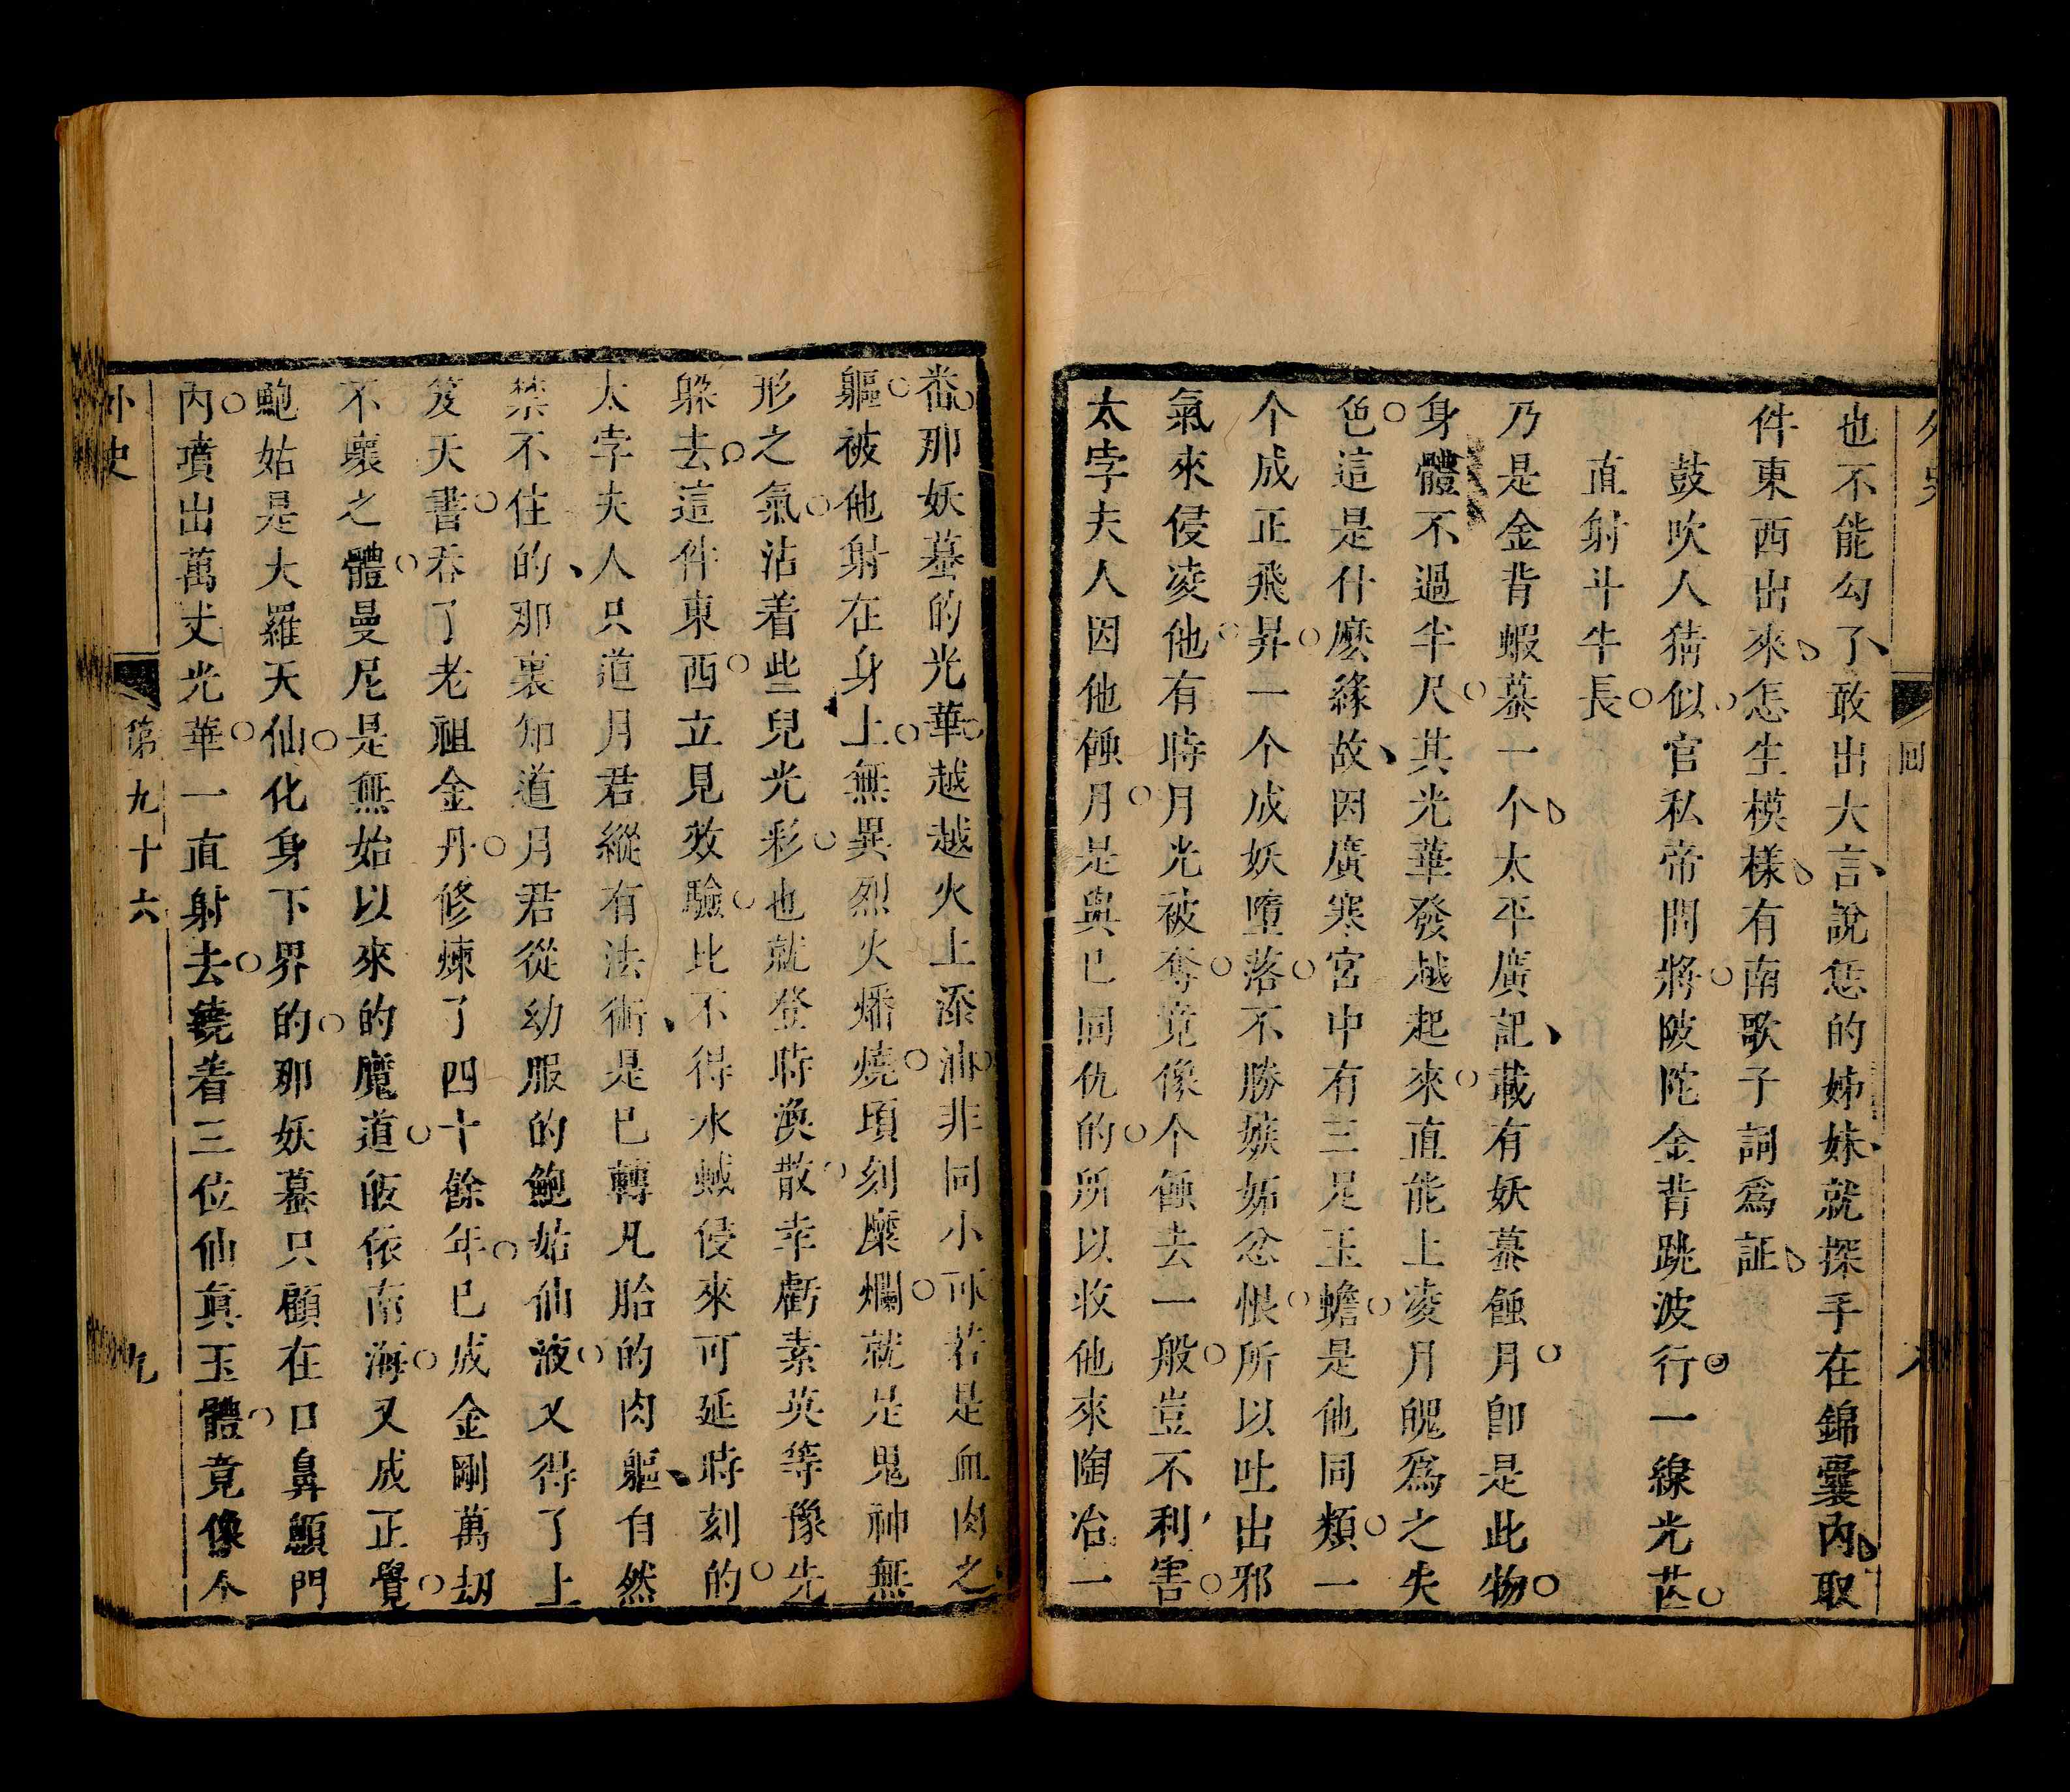 外史
回
也不能勾了敢出大言說恁的姊妹就探手在錦囊內取
件東西出來怎生模樣有南歌子詞爲証
鼓吹人猜似官私帝問將陂陀金背跳波行一線光芒
直射斗牛長
乃是金背蝦蟇一个太平廣記載有妖蟇蝕月卽是此物
身體不過半尺其光華發越起來直能上凌月魄爲之失
色這是什麽緣故因廣寒宮中有三足玉蟾是他同類一
个成正飛昇一个成妖墮落不勝嫉妬忿恨所以吐出邪
氣來侵凌他有時月光被奪竟像个蝕去一般豈不利害
太孛夫人因他蝕月是與己同仇的所以收他來陶冶一
番那妖蟇的光華越越火上添油非同小可若是血肉之
軀被他射在身上無異烈火燔燒頃刻糜爛就是鬼神無
形之氣沾着些兒光彩也就登時渙散幸虧素英等豫先
躲去這件東西立見效驗比不得水蛾侵來可延時刻的
太孛夫人只道月君縱有法術是已轉凡胎的肉軀自然
禁不住的那裏知道月君從幼服的鮑姑仙液又得了上
笈天書吞了老祖金丹修煉了四十餘年已成金剛萬刼
不壞之體曼尼是無始以來的魔道皈依南海又成正覺
鮑姑是大羅天仙化身下界的那妖蟇只顧在口鼻顖門
內噴出萬丈光華一直射去繞着三位仙眞玉體竟像个
外史
第九十六
九